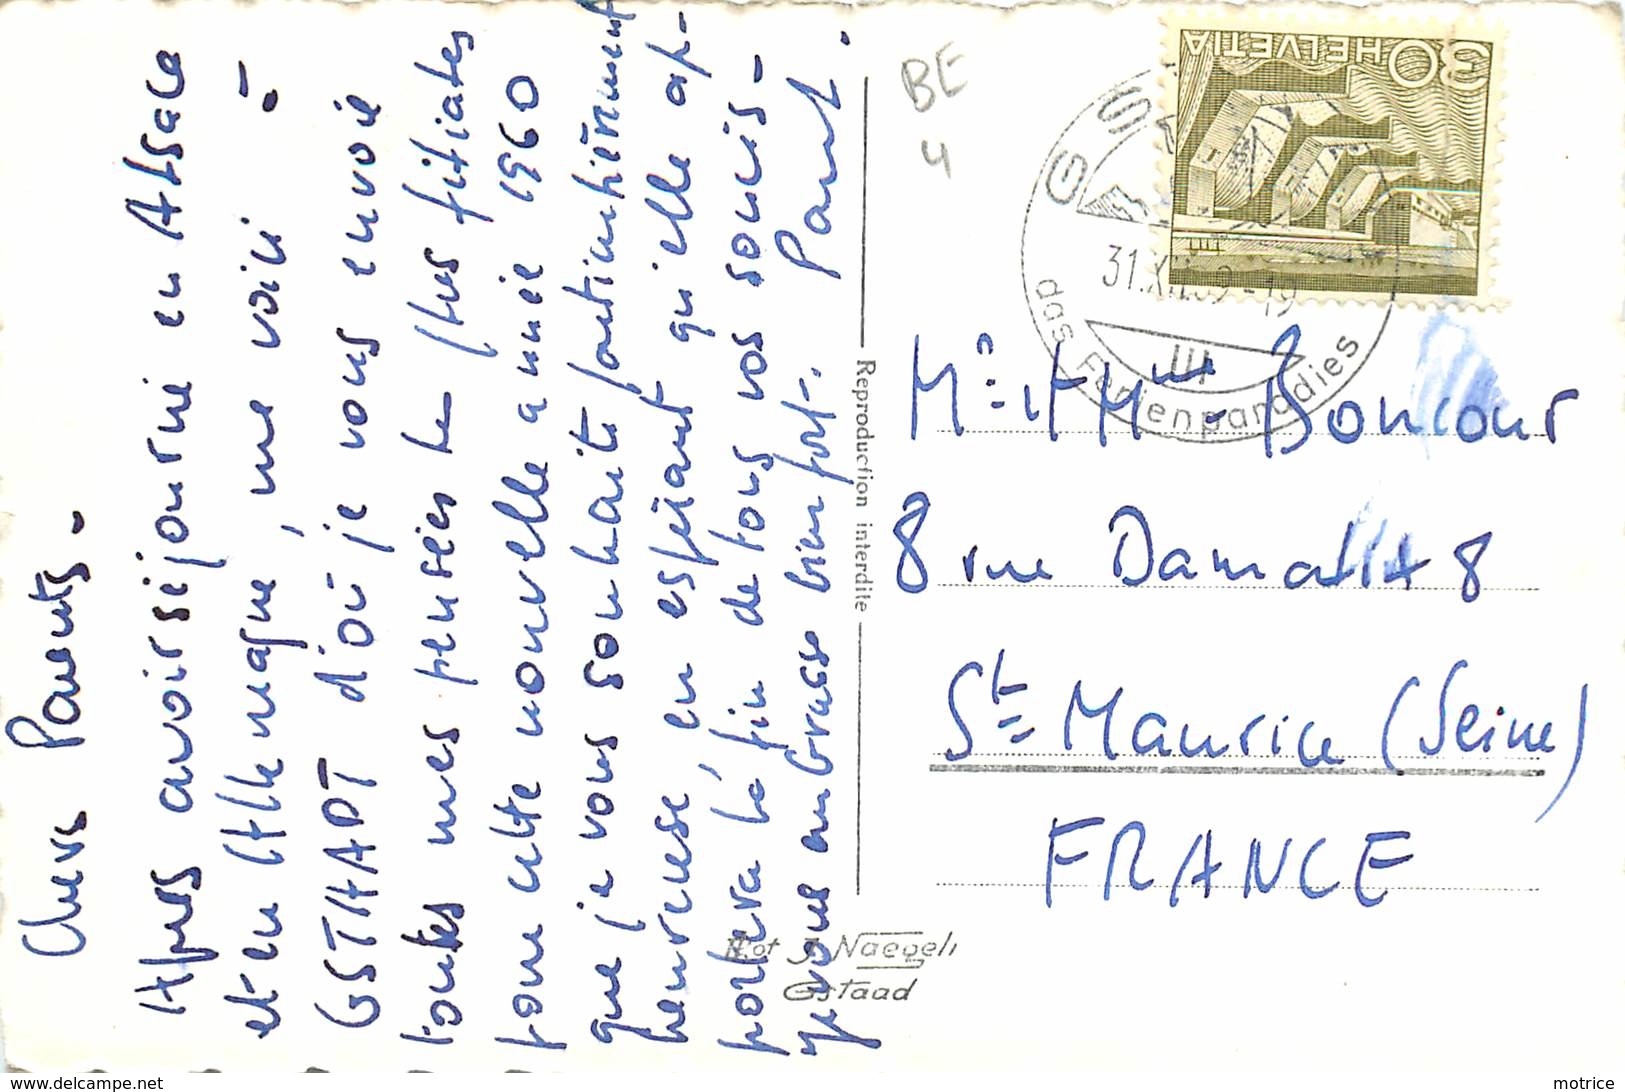 Chers Parents -
Après avoir séjourné en Alsace
et en Allemagne, me voici =
GSTHADT d'où je vous envoie
toutes mes pensées les plus filiales
pour cette nouvelle année 1960
que je vous souhaite particulièrement
heureuse, en espérant qu'elle ap-
portera la fin de tous vos soucis -
je vous embrasse bien fort.
Paul.
Reproduction interdite
Fot J. Naegeli
Gstaad
BE
4
HELVETIA
30
31.XII.59-19
das Ferienparadies
Mr et Mme Boncour
8 rue Damalix 8
St Maurice (Seine)
FRANCE
motrice
www.delcampe.net